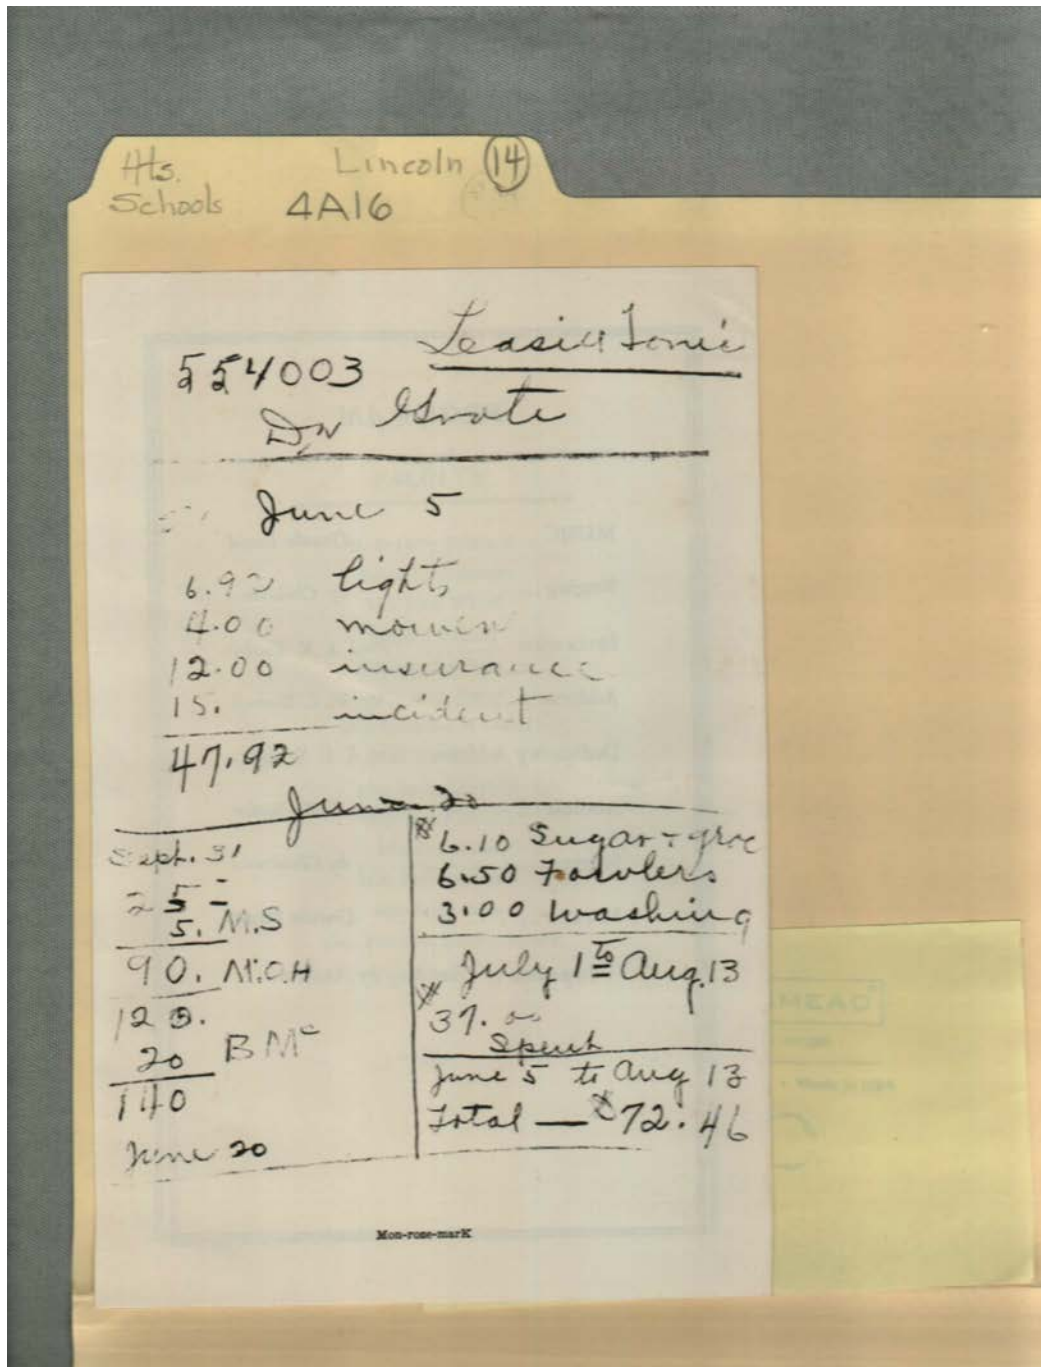 Hts. Lincoln 14
Schools 4A16
554003
Dr Grote
June 5
6.92 lights
4.00 mower
12.00 insurance
15. incident
47.92
June 20
Sept. 31
25 -
5. M.S
90. M.O.H
120.
20 B Mc
140
June 20
$6.10 Sugar + groc
6.50 Fowlers
3.00 washing
July 1 to Aug. 13
$37.00
Spent
June 5 to Aug 13
Total — $72.46
Mon-rose-marK